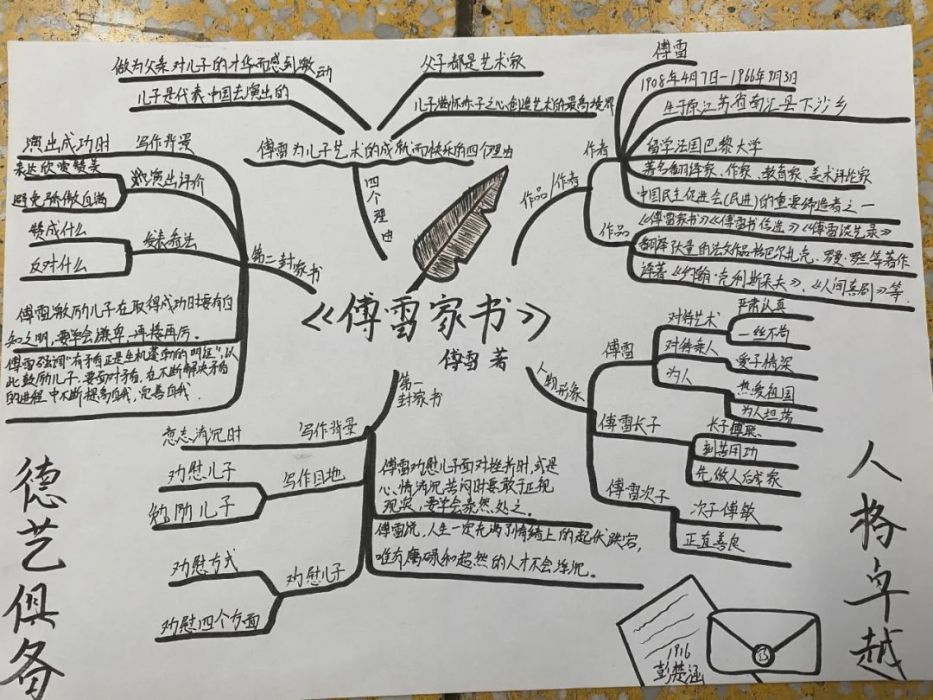 做为父亲对儿子的才华而感到激动
儿子是代表中国去演出的
父子都是艺术家
儿子幽怀赤子之心创造艺术的最高境界
傅雷为儿子艺术的成就而快乐的四个理由
四个理由
作品/作者
作者
傅雷
1908年4月7日-1966年9月3日
生于原江苏省南汇县下沙乡
留学法国巴黎大学
著名翻译家、作家、教育家、美术评论家
中国民主促进会(民进)的重要缔造者之一
作品
《傅雷家书》《傅雷书信选》《傅雷谈艺录》
翻译大量的法文作品包括巴尔扎克、罗曼·罗兰等著作
译著《约翰·克利斯朵夫》、《人间喜剧》等
第二封家书
写作背景
演出成功时
演出评价
表达欣赏赞美
避免骄傲自满
发表看法
赞成什么
反对什么
傅雷激励儿子在取得成功时要有自
知之明,要学会谦卑,再接再厉。
傅雷强调"有矛盾正是生机蓬勃的明证",以
此鼓励儿子,要面对矛盾,在不断解决矛盾
的进程中不断提高自我,完善自我.
《傅雷家书》
傅雷 著
第一封家书
写作背景
意志消沉时
写作目地
劝慰儿子
勉励儿子
劝慰儿子
劝慰方式
劝慰四个方面
傅雷劝慰儿子面对挫折时,或是
心情消沉苦闷时要敢于正视
现实,要学会泰然处之。
傅雷说,人生一定充满了情绪上的起伏跌宕,
唯有磨砺和超然的人才不会消沉。
人物形象
傅雷
对待艺术
严肃认真
一丝不苟
对待亲人
爱子情深
为人
热爱祖国
为人坦荡
傅雷长子
长子傅聪.
刻苦用功
先做人后成家
傅雷次子
次子傅敏
正直善良
德艺俱备
人格卓越
1916
彭楚涵